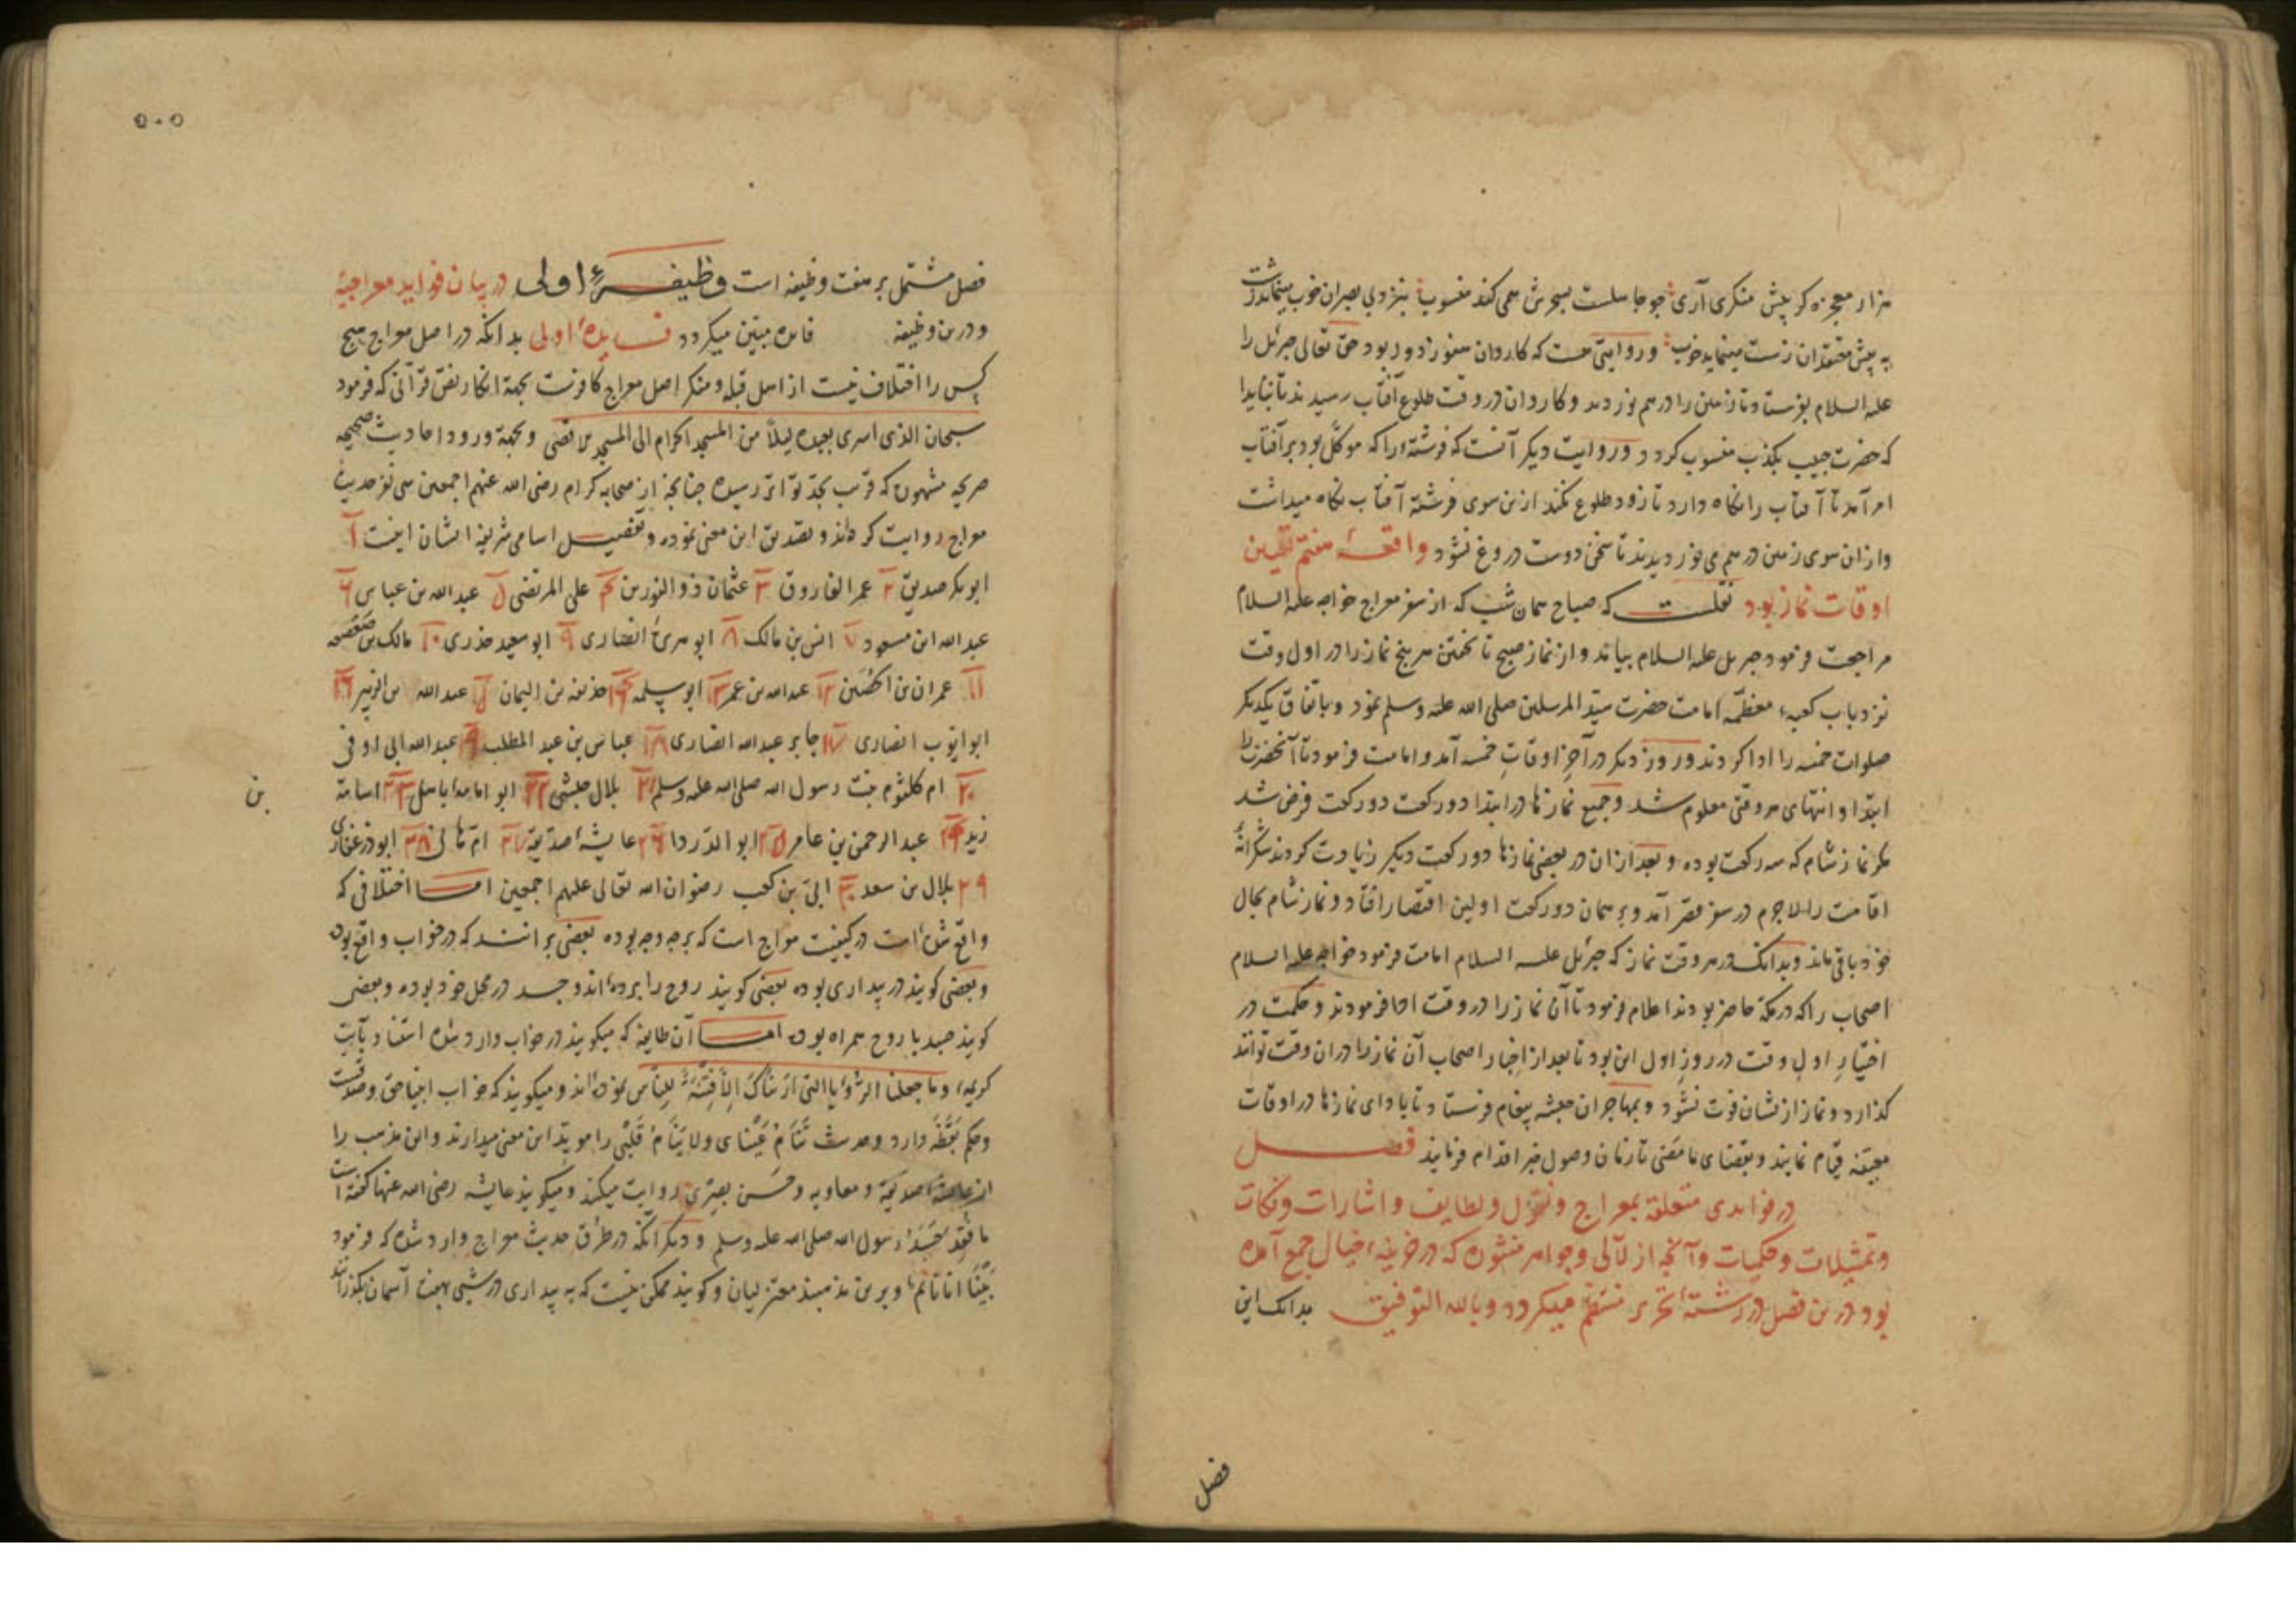 هزار معجزه کر پیش منکری آری جو جاهلست بسحرش همی کند منسوب بنزد بی بصران خوب مینماید زشت
به پیش معتقدان زشت مینماید خوب و روایتی هست که کاروان هنوز دور بود حق تعالی جبرئیل را
علیه السلام بفرستاد تا زمین را درهم نوردند و کاروان در وقت طلوع آفتاب رسیدند تا نباید
که حضرت حبیب بکذب منسوب کردد و روایت دیکر آنست که فرشته را که موکل بود بر آفتاب
امر آمد تا آفتاب را نکاه دارد تا زود طلوع نکند ازین سوی فرشته آفتاب نکاه میداشت
و ازان سوی زمین درهم می نوردیدند تا سخن دوست دروغ نشود واقعهٔ هفتم تعیین
اوقات نماز بود نقلست که صباح همان شب که از سفر معراج خواجه علیه السلام
مراجعت فرمود جبریل علیه السلام بیامد و از نماز صبح تا خفتن هر پنج نماز را در اول وقت
نزد باب کعبهء معظمه امامت حضرت سید المرسلین صلی الله علیه وسلم نمود و باتفاق یکدیکر
صلوات خمسه را ادا کردند و روز دیکر در آخر اوقات خمسه آمد و امامت فرمود تا آنحضرت را
ابتدا و انتهای هر وقتی معلوم شد و جمیع نمازها در ابتدا دو رکعت دو رکعت فرض شد
مکر نماز شام که سه رکعت بوده و بعد ازان در بعضی نمازها دو رکعت دیکر زیادت کردند شکرانهٔ
اقامت را لاجرم در سفر قصر آمد و بر همان دو رکعت اولین اقتصار افتاد و نماز شام بحال
خود باقی ماند و بدانکه در هر وقت نماز که جبرئیل علیه السلام امامت فرمود خواجه علیه السلام
اصحاب را که در مکه حاضر بودند اعلام فرمود تا آن نماز را در وقت ادا فرمودند و حکمت در
اختیار اول وقت در روز اول این بود تا بعد از اخبار اصحاب آن نماز را دران وقت توانند
کذارد و نماز ازیشان فوت نشود و بمهاجران حبشه پیغام فرستاد تا بادای نمازها در اوقات
معینه قیام نمایند و بقضای ما مضی تا زمان وصول خبر اقدام فرمایند فصل
در فوایدی متعلقه بمعراج و نقول و لطایف و اشارات و نکات
و تمثیلات و حکمیات و آنچه از لآلی و جواهر منثوره که در خزینهء خیال جمع آمده
بود درین فصل در رشتهٔ تحریر منتظم میکردد و بالله التوفیق بدانک این
فصل
٥٠٥
فصل مشتمل بر هفت وظیفه است وظیفهٔ اولی در بیان فواید معراجیه
و درین وظیفه فایده مبین میکردد فایدهٔ اولی بدانکه در اصل معراج هیچ
کس را اختلاف نیست از اهل قبله و منکر اصل معراج کافرست بجهة انکار نص قرآنی که فرمود
سبحان الذی اسری بعبده لیلاً من المسجد الحرام الی المسجد الاقصی و بجهة ورود احادیث صحیحه
صریحه مشهوره که قریب بحد تواتر رسیده چنانچه از صحابه کرام رضی الله عنهم اجمعین سی نفر حدیث
معراج روایت کرده‌اند و تصدیق این معنی نموده و تفصیل اسامی شریفه ایشان اینست ١
ابو بکر صدیق ٢ عمر الفاروق ٣ عثمان ذو النورین ۴ علی المرتضی ٥ عبد الله بن عباس ٦
عبد الله ابن مسعود ٧ انس بن مالک ٨ ابو هریرهٔ انصاری ٩ ابو سعید خدری ١٠ مالک بن صعصعه
١١ عمران بن الحصین ١٢ عبد الله بن عمر ١٣ ابو سلمه ١۴ حذیفه بن الیمان ١٥ عبد الله بن الزبیر ١٦
ابو ایوب انصاری ١٧ جابر عبد الله انصاری ١٨ عباس بن عبد المطلب ١٩ عبد الله ابی اوفی
٢٠ ام کلثوم بنت رسول الله صلی الله علیه وسلم ٢١ بلال حبشی ٢٢ ابو امامه باهلی ٢٣ اسامة
بن
زید ٢۴ عبد الرحمن بن عامر ٢٥ ابو الدردا ٢٦ عایشهٔ صدیقه ٢٧ ام هانی ٢٨ ابو ذر غفاری
٢٩ بلال بن سعد ٣٠ ابی بن کعب رضوان الله تعالی علیهم اجمعین اما اختلافی که
واقع شده است در کیفیت معراج است که برچه وجه بوده بعضی برانند که در خواب واقع بوده
و بعضی کویند در بیداری بوده بعضی کویند روح را برده‌اند و جسد در محل خود بوده و بعضی
کویند جسد با روح همراه بوده اما آن طایفه که میکویند در خواب وارد شده استناد بآیت
کریمهء وما جعلنا الرؤیا التی اریناک الا فتنة للناس نموده‌اند و میکویند که خواب انبیا حق و صدقست
و حکم یقظه دارد و حدیث تنام عینای ولا ینام قلبی را موید این معنی میدارند و این مذهب را
از عایشهٔ صدیقه و معاویه و حسن بصری روایت میکنند و میکویند عایشه رضی الله عنها کفته است
ما فقد جسد رسول الله صلی الله علیه وسلم و دیکر آنکه در طرق حدیث معراج وارد شده که فرمود
بینا انا نائم و برین مذهبند معتزلیان و کویند ممکن نیست که به بیداری در شبی هفت آسمان بکذرانند